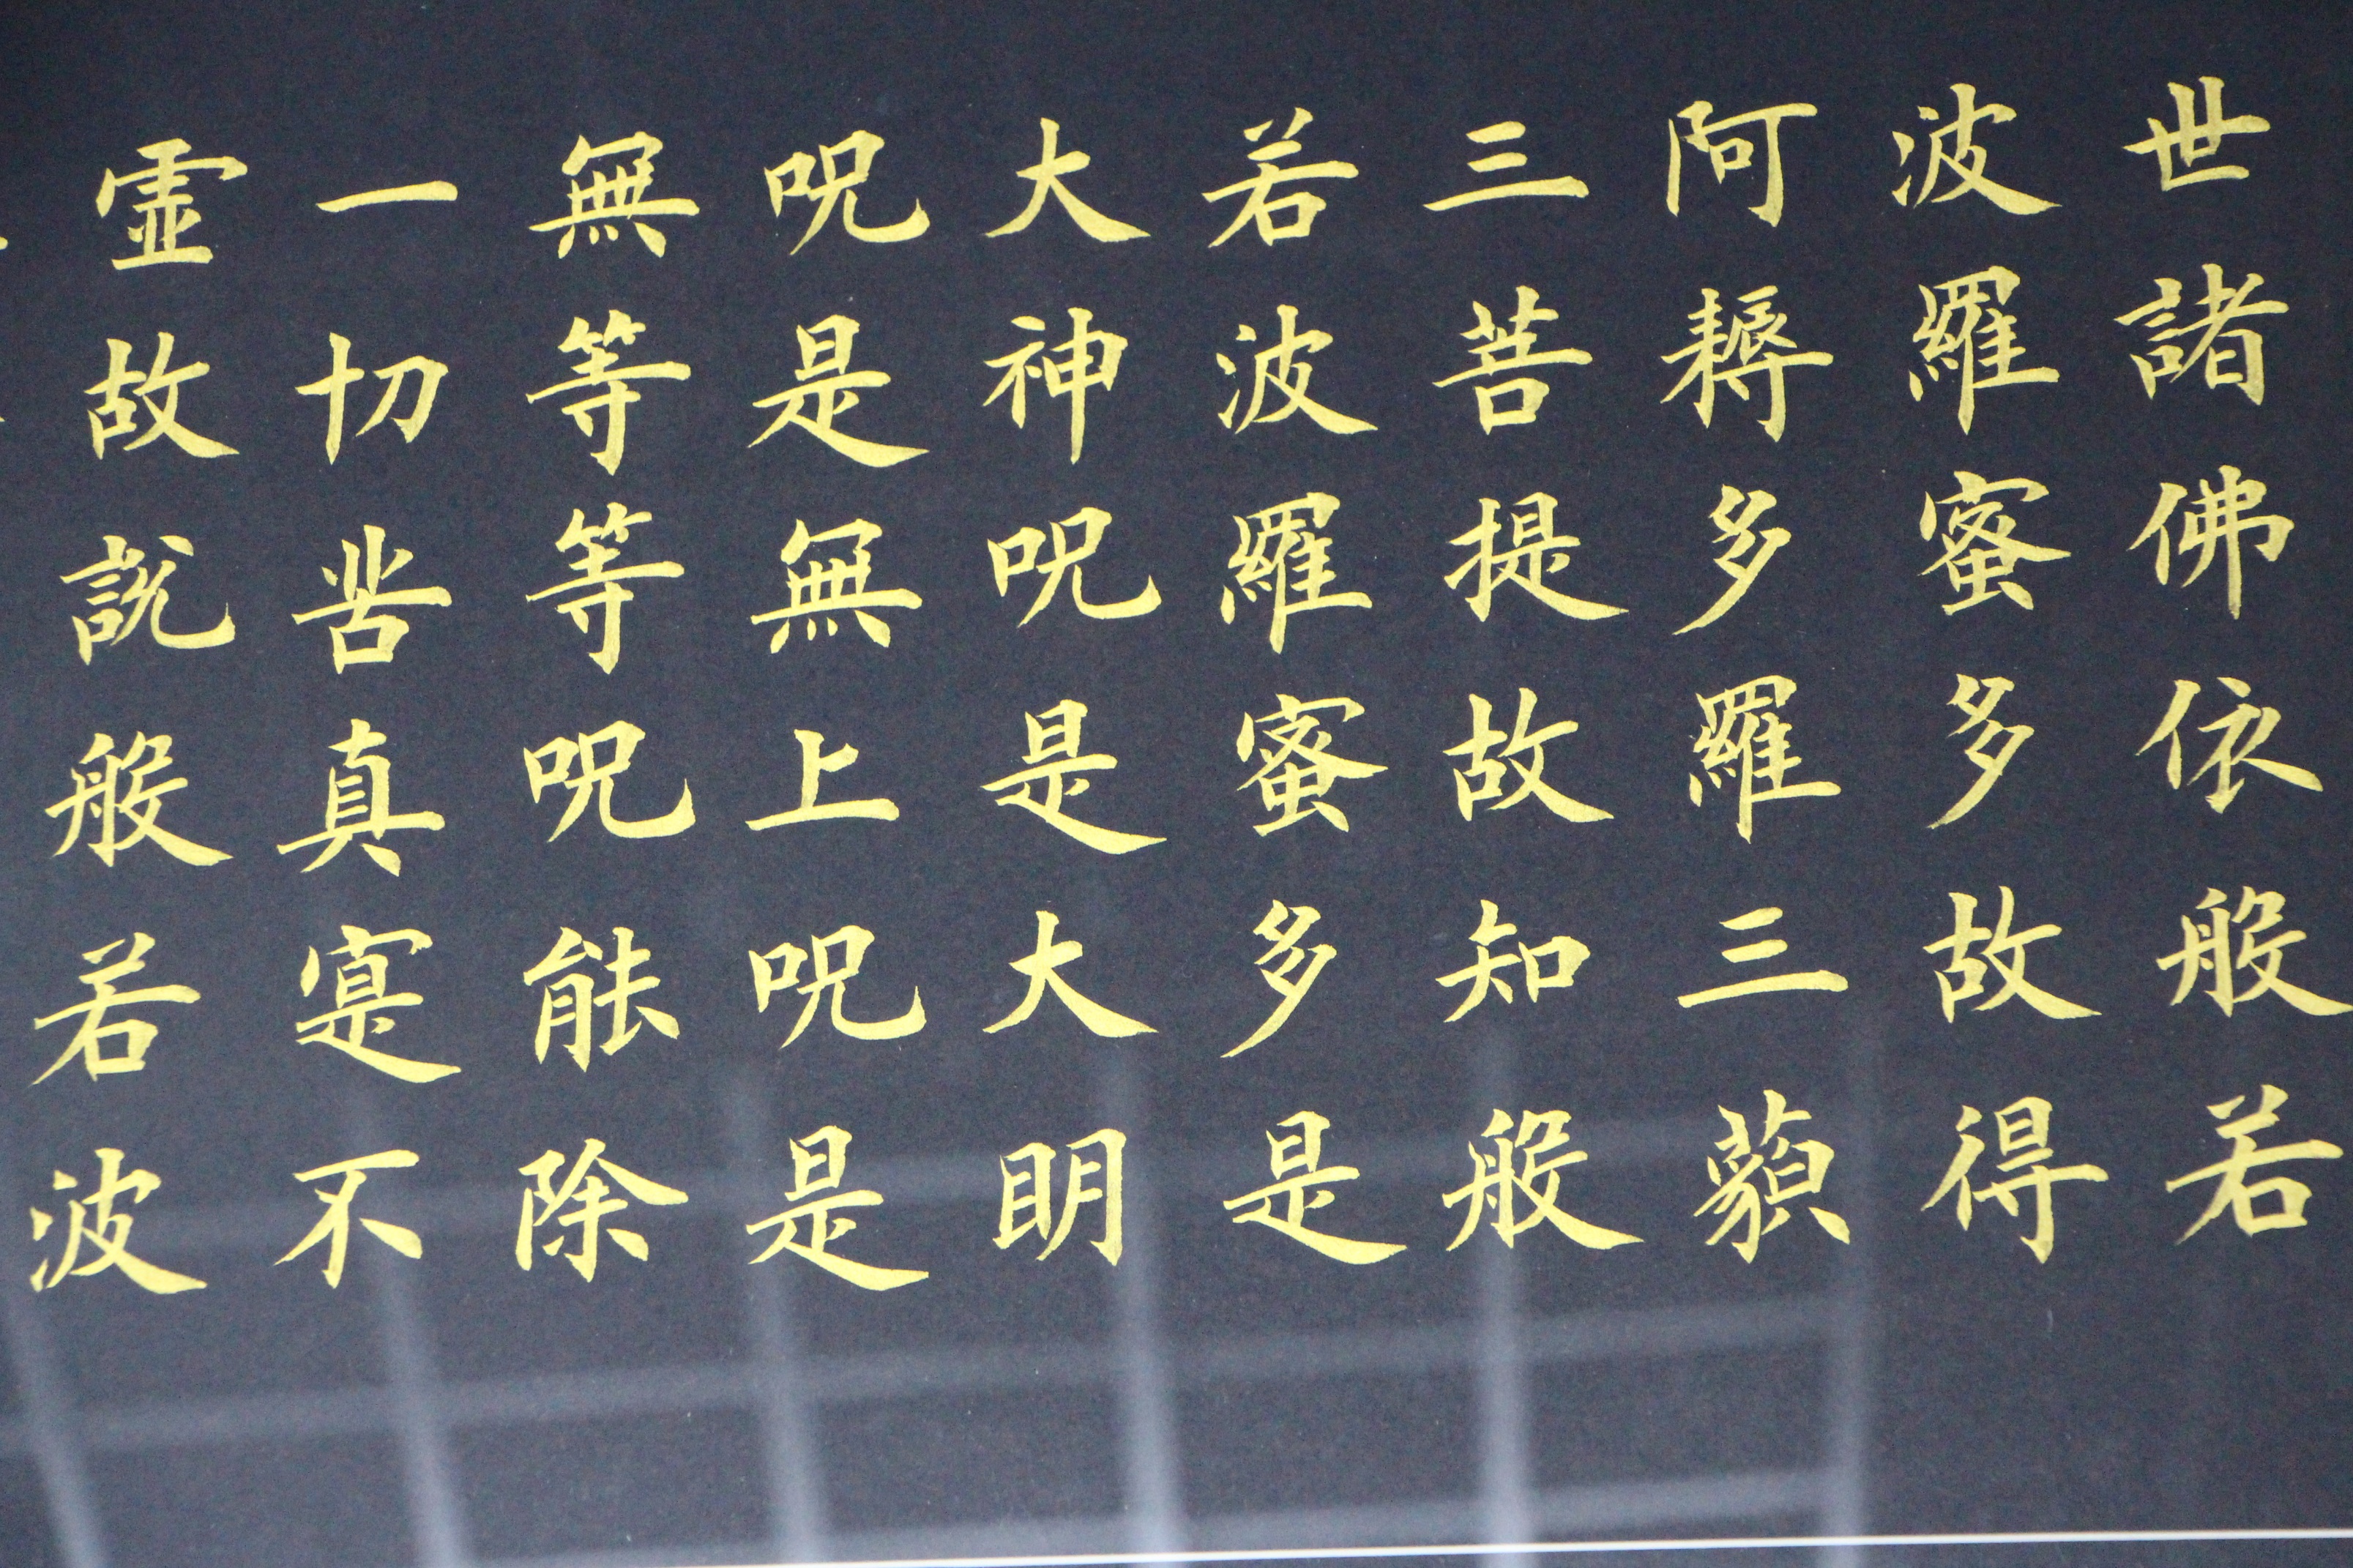 世諸佛依般若
波羅蜜多故得
阿耨多羅三藐
三菩提故知般
若波羅蜜多是
大神呪是大明
呪是無上呪是
無等等呪能除
一切苦真寔不
虛故說般若波